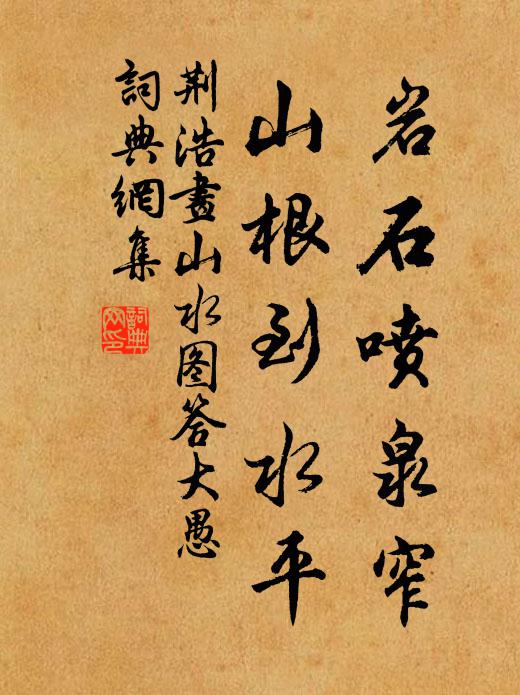 岩石喷泉窄
山根到水平
荆浩畫山水图答大愚
詞典網集
詞典网印